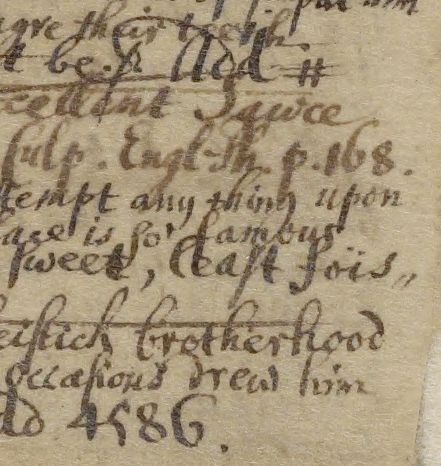 put him
their teeth
t be. Add #
cellent Sawce
Culp. English. p. 168.
tempt any thing upon
is so famous
sweet, least Pois„
brotherhood
occasions drew him
4586.